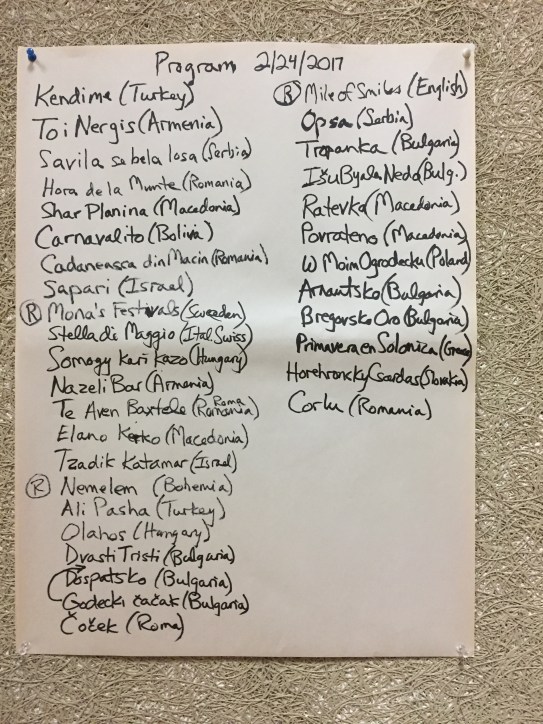 Program 2/24/2017
Kendime (Turkey)
Toi Nergis (Armenia)
Savila se bela losa (Serbia)
Hora de la Munte (Romania)
Shar Planina (Macedonia)
Carnavalito (Bolivia)
Cadaneasca din Macin (Romania)
Sapari (Israel)
R Mona's Festivals (Sweeden)
Stella di Maggio (Ital. Swiss)
Somogy Kari Kazo (Hungary)
Nazeli Bar (Armenia)
Te Aven Baxtele (Roma Romania)
Elano Kerko (Macedonia)
Tzadik Katamar (Israel)
R Nemelem (Bohemia)
Ali Pasha (Turkey)
Olahos (Hungary)
Dvasti Tristi (Bulgaria)
Dospatsko (Bulgaria)
Godecki čačak (Bulgaria)
Čoček (Roma)
R Mile of Smiles (English)
Opsa (Serbia)
Tropanka (Bulgaria)
Išu Byala Nedo (Bulg.)
Ratevka (Macedonia)
Povrateno (Macedonia)
W Moim Ogrodecka (Poland)
Arnautsko (Bulgaria)
Bregovsko Oro (Bulgaria)
Primavera en Salonica (Greece)
Horehroncky Csardas (Slovakia)
Corlu (Romania)